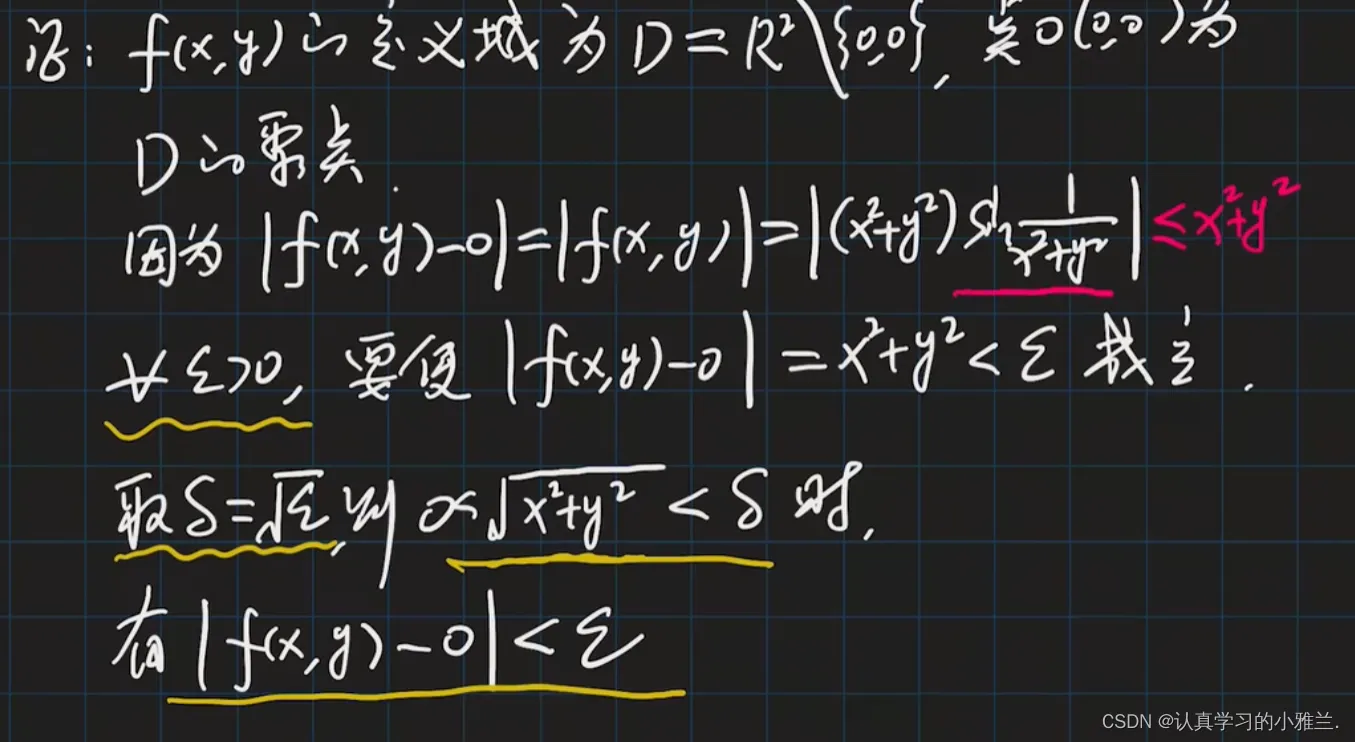 证: f(x,y)的定义域为D=R²\{0,0}, 点O(0,0)为
D的聚点.
因为|f(x,y)-0|=|f(x,y)|=|(x²+y²)sin 1/(x²+y²)|≤x²+y²
∀ε>0, 要使|f(x,y)-0|=x²+y²<ε成立.
取δ=√ε,则0<√(x²+y²)<δ时,
有|f(x,y)-0|<ε
CSDN @认真学习的小雅兰.